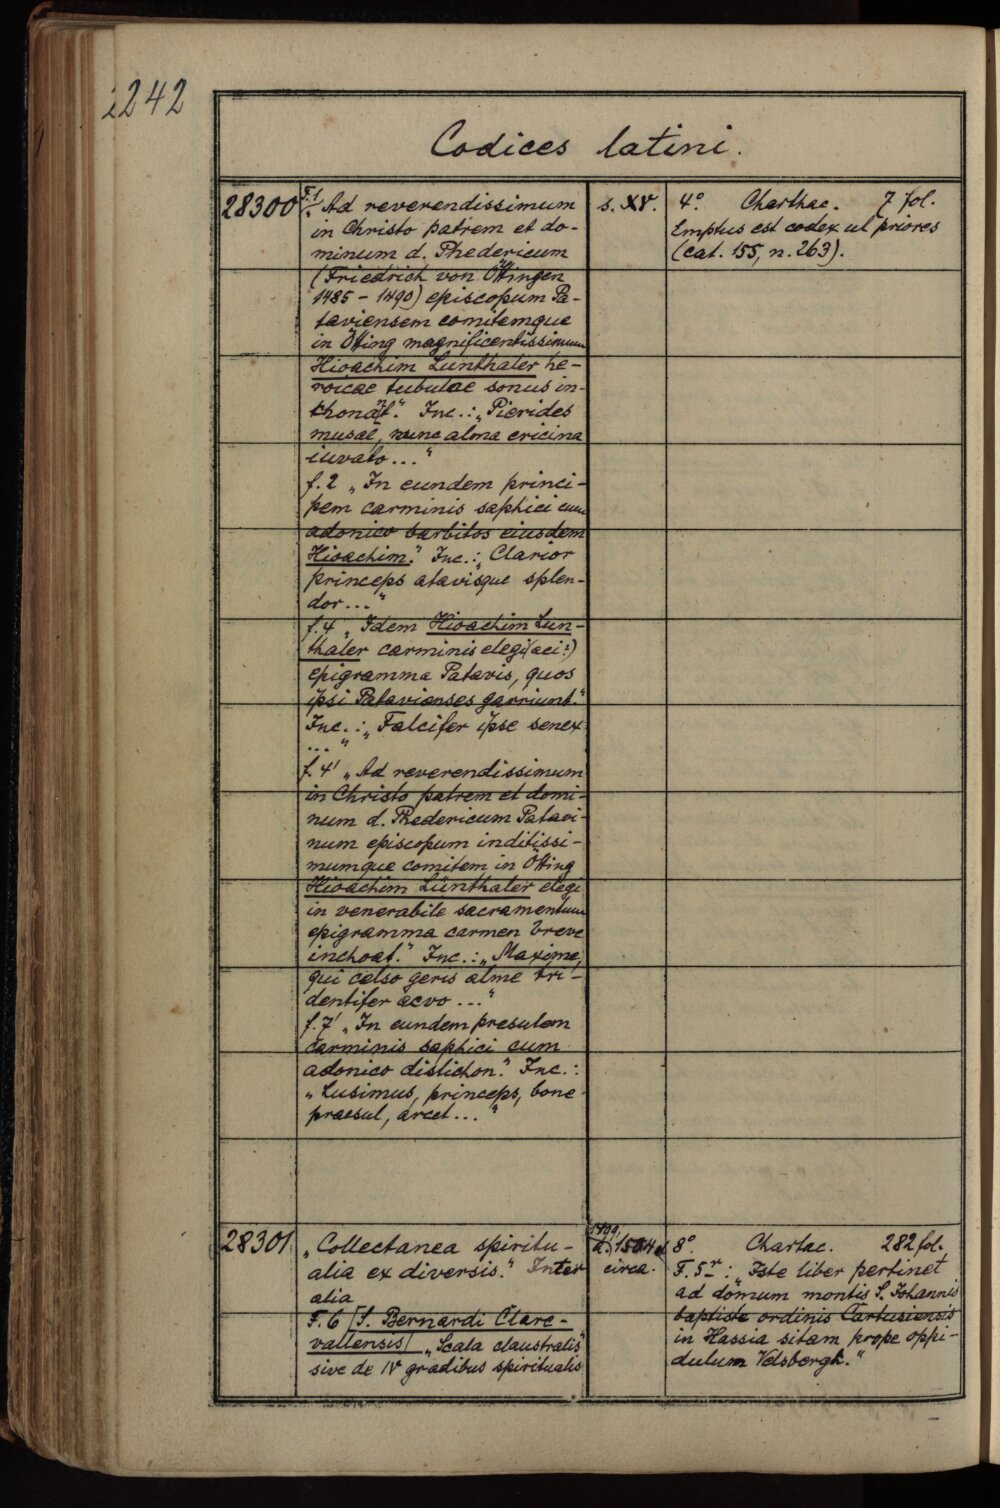 242
Codices latini.
28300
F.1 „Ad reverendissimum
in Christo patrem et do-
minum d. Phedericum
(Friedrich von Öttingen
1485 - 1490) episcopum Pa-
taviensem comitemque
in Ötting magnificentissimum
Hioachim Lünthaler he-
roicae tubulae sonus in-
thonat." Inc.: „Pierides
musae, nunc alma ericina
iuvato ..."
f. 2 „In eundem princi-
pem carminis saphici cum
adonico barbitos eiusdem
Hioachim." Inc.: „Clarior
princeps atavisque splen-
dor ..."
f. 4 „Idem Hioachim Lun-
thaler carminis elegi (aci?)
epigramma Patavis, quos
ipsi Patavienses garriunt."
Inc.: „Falcifer ipse senex
..."
f. 4' „Ad reverendissimum
in Christo patrem et domi-
num d. Phedericum Patavi-
num episcopum inditissi-
mumque comitem in Ötting
Hioachim Lünthaler elegi
in venerabile sacramentum
epigramma carmen breve
inchoat." Inc.: „Maxime,
qui celso geris alme tri-
dentifer aevo ..."
f. 7' „In eundem presulem
carminis saphici cum
adonico distichon." Inc.:
„Lusimus, princeps, bone
praesul, arcet ..."
s. XV.
4°. Chartac. 7 fol.
Emptus est codex ut priores
(cat. 155, n. 263).
28301
„Collectanea spiritu-
alia ex diversis." Inter
alia
F. 6 [S. Bernardi Clare-
vallensis] „Scala claustralis
sive de IV gradibus spiritualis
1499
a. 1504
circa.
8°. Chartac. 282 fol.
F. 5r: „Iste liber pertinet
ad domum montis S. Iohannis
baptiste ordinis Cartusiensis
in Hassia sitam prope oppi-
dulum Velsbergk."